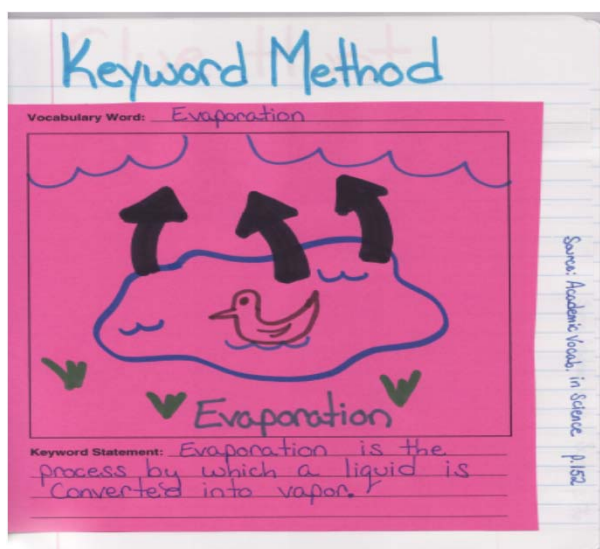 Keyword Method
Vocabulary Word: Evaporation
Evaporation
Keyword Statement: Evaporation is the
process by which a liquid is
converted into vapor.
Source: Academic Vocab. in Science p.152